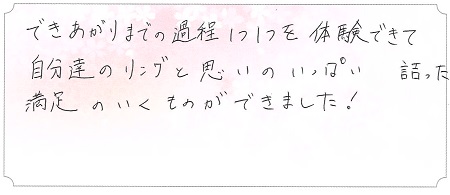 できあがりまでの過程1つ1つを 体験できて
自分達のリングと思いのいっぱい 詰った
満足のいくものができました!